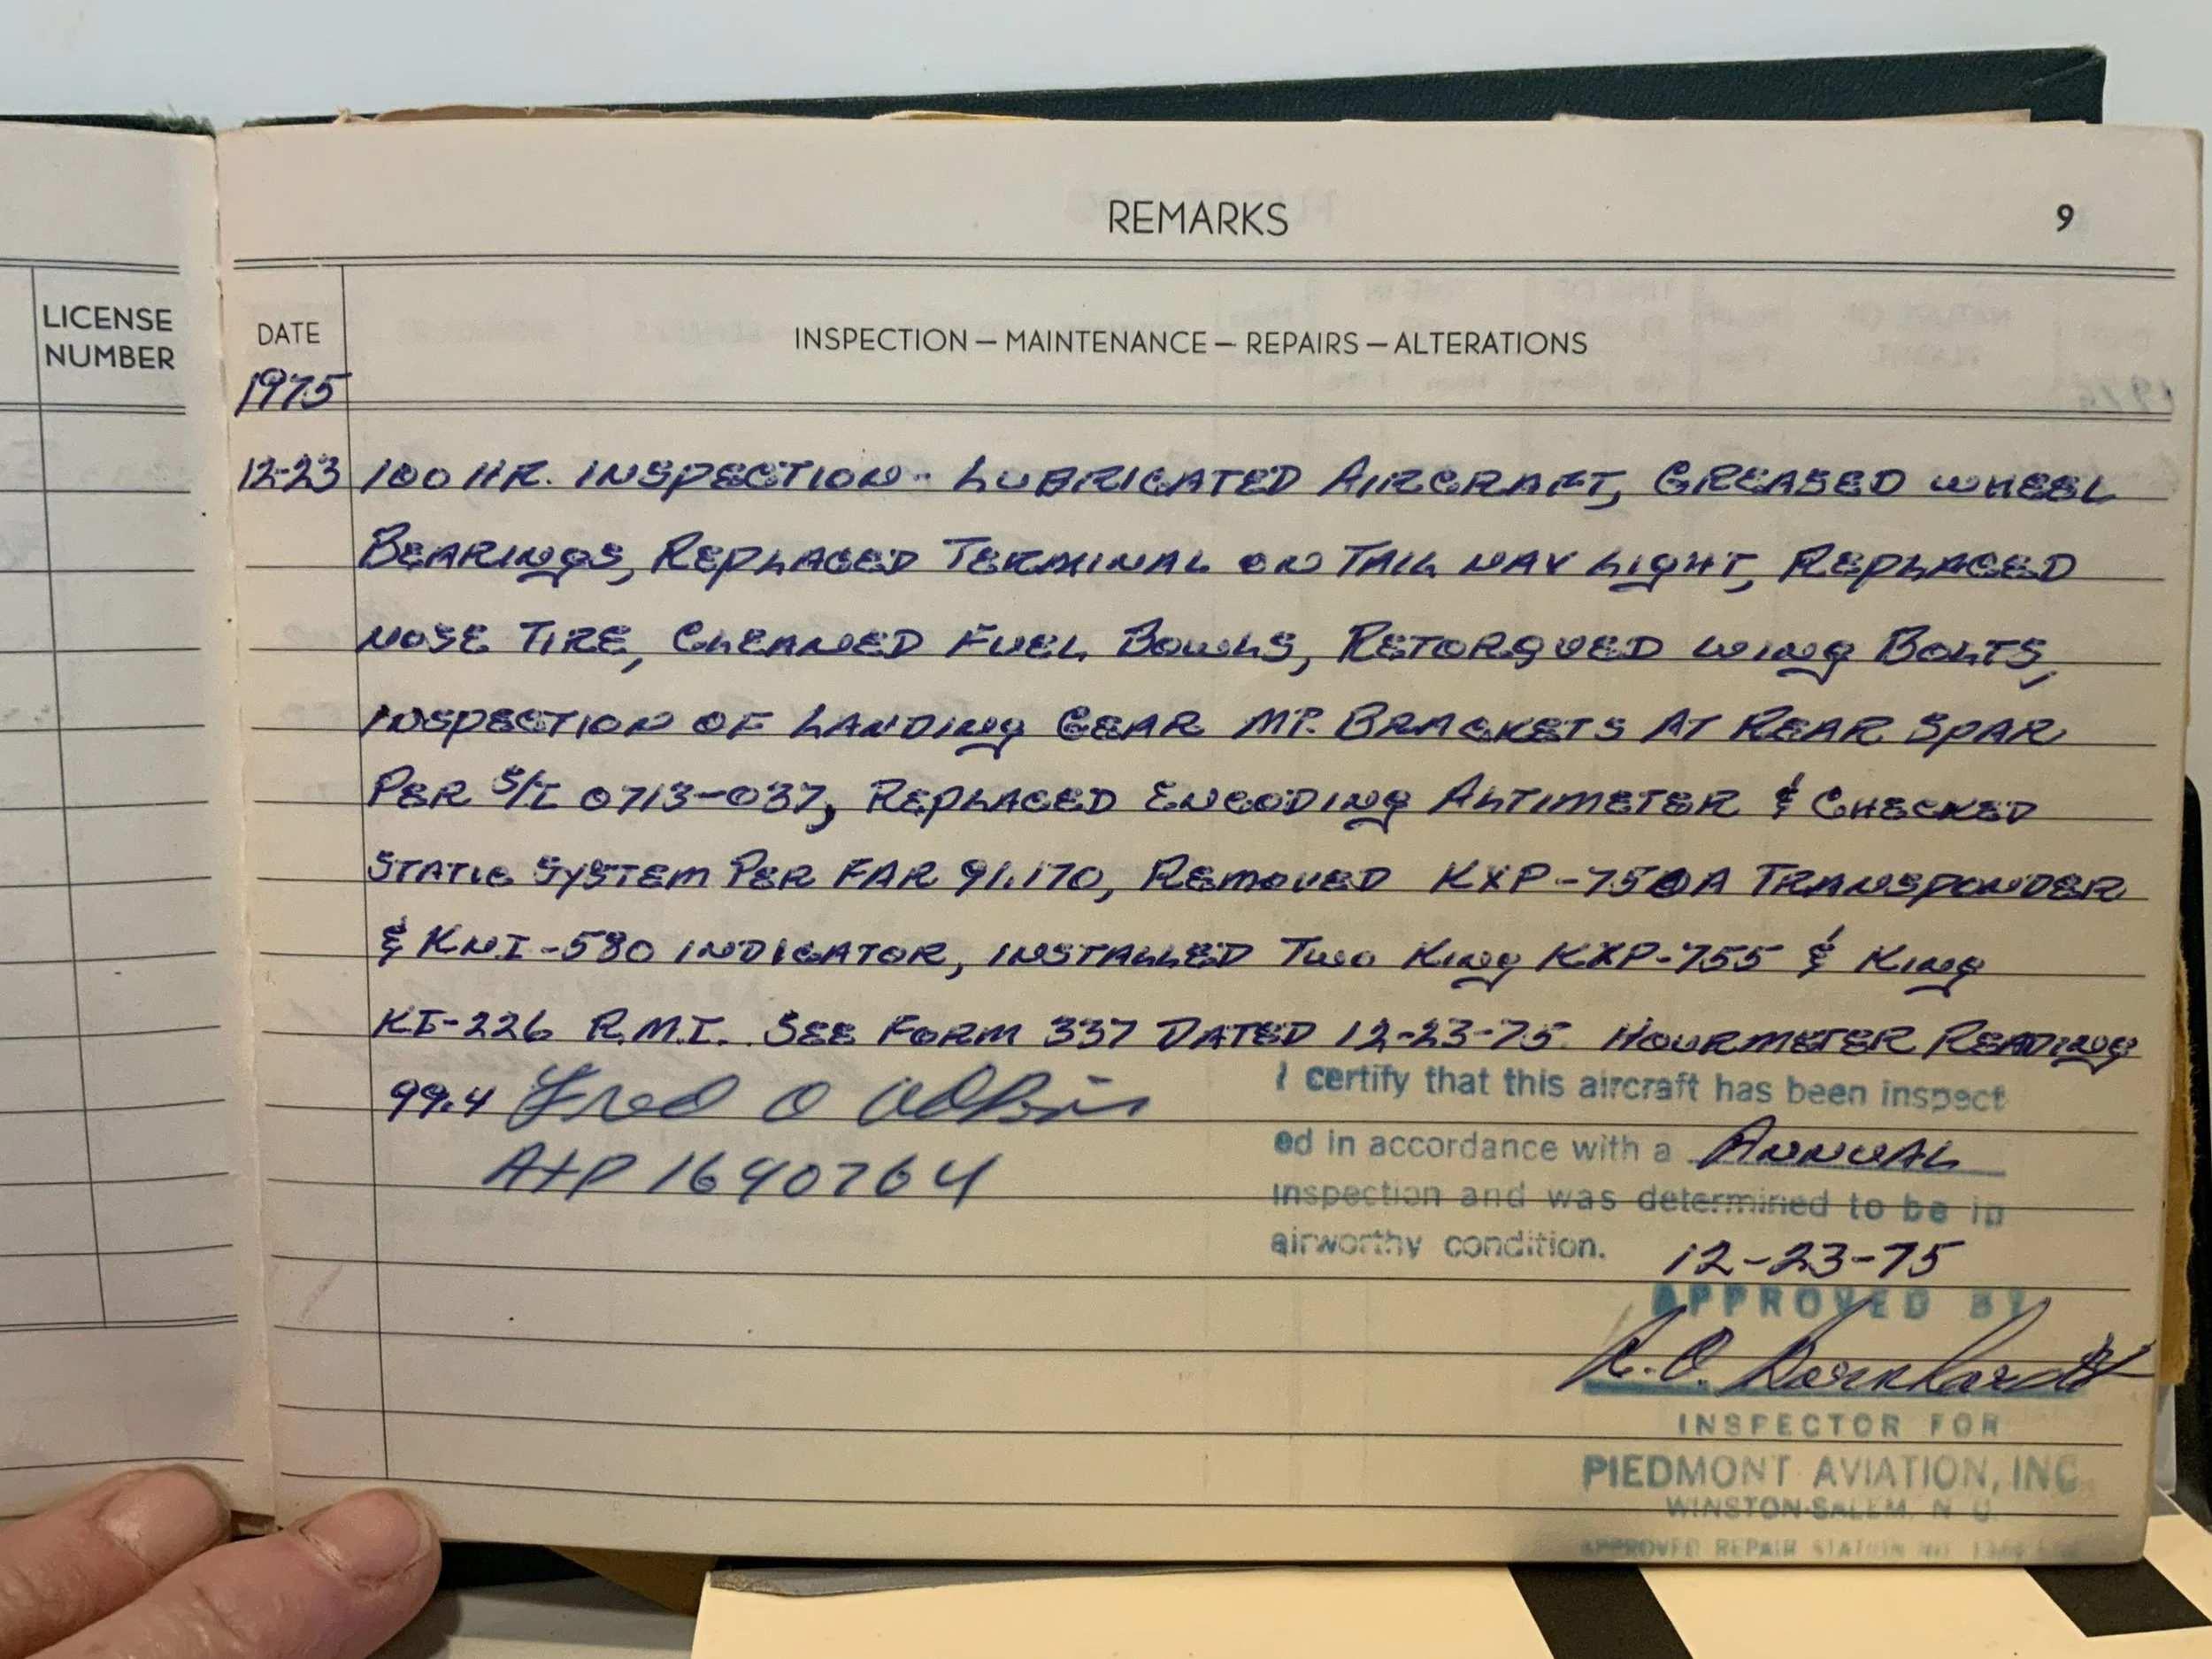 REMARKS
9
LICENSE
NUMBER
DATE
INSPECTION — MAINTENANCE — REPAIRS — ALTERATIONS
1975
12-23 100 HR. INSPECTION - LUBRICATED AIRCRAFT, GREASED WHEEL
BEARINGS, REPLACED TERMINAL ON TAIL NAV LIGHT, REPLACED
NOSE TIRE, CLEANED FUEL BOWLS, RETORQUED WING BOLTS,
INSPECTION OF LANDING GEAR MT. BRACKETS AT REAR SPAR
PER S/I 0713-037, REPLACED ENCODING ALTIMETER & CHECKED
STATIC SYSTEM PER FAR 91.170, REMOVED KXP-750A TRANSPONDER
& KNI-580 INDICATOR, INSTALLED TWO KING KXP-755 & KING
KI-226 R.M.I. SEE FORM 337 DATED 12-23-75. HOURMETER READING
99.4 Fred O
A+P 1640764
I certify that this aircraft has been inspect
ed in accordance with a ANNUAL
inspection and was determined to be in
airworthy condition. 12-23-75
APPROVED BY
INSPECTOR FOR
PIEDMONT AVIATION, INC.
WINSTON-SALEM, N. C.
APPROVED REPAIR STATION NO.